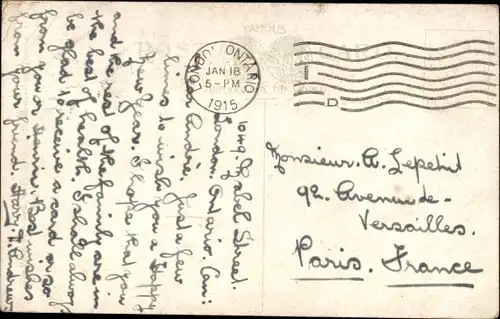 FAMOUS
LONDON ONTARIO
JAN 18
5-PM
1915
D
1049. Isabel Street.
London. Ontario. Can:
Dear André. Just a few
lines to wish you a Happy
New Year. I hope that you
and the rest of the family are in
the best of health. I shall always
be glad to receive a card or so
from you or Best wishes
from your friend. Harry. H. Andrew.
Monsieur. A. Lepetit
92. Avenue de-
Versailles.
Paris. France